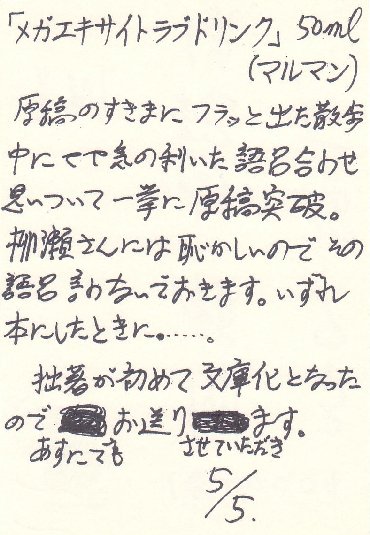 「メガエキサイトラブドリンク」50ml
(マルマン)
原稿のすきまにフラッと出た散歩
中にやや気の利いた語呂合わせ
思いついて一挙に原稿突破。
柳瀬さんには恥かしいのでその
語呂言わないでおきます。いずれ
本にしたときに・・・・・・。
拙著が初めて文庫化となった
ので お送り ます。
あすにでも させていただき
5/5.